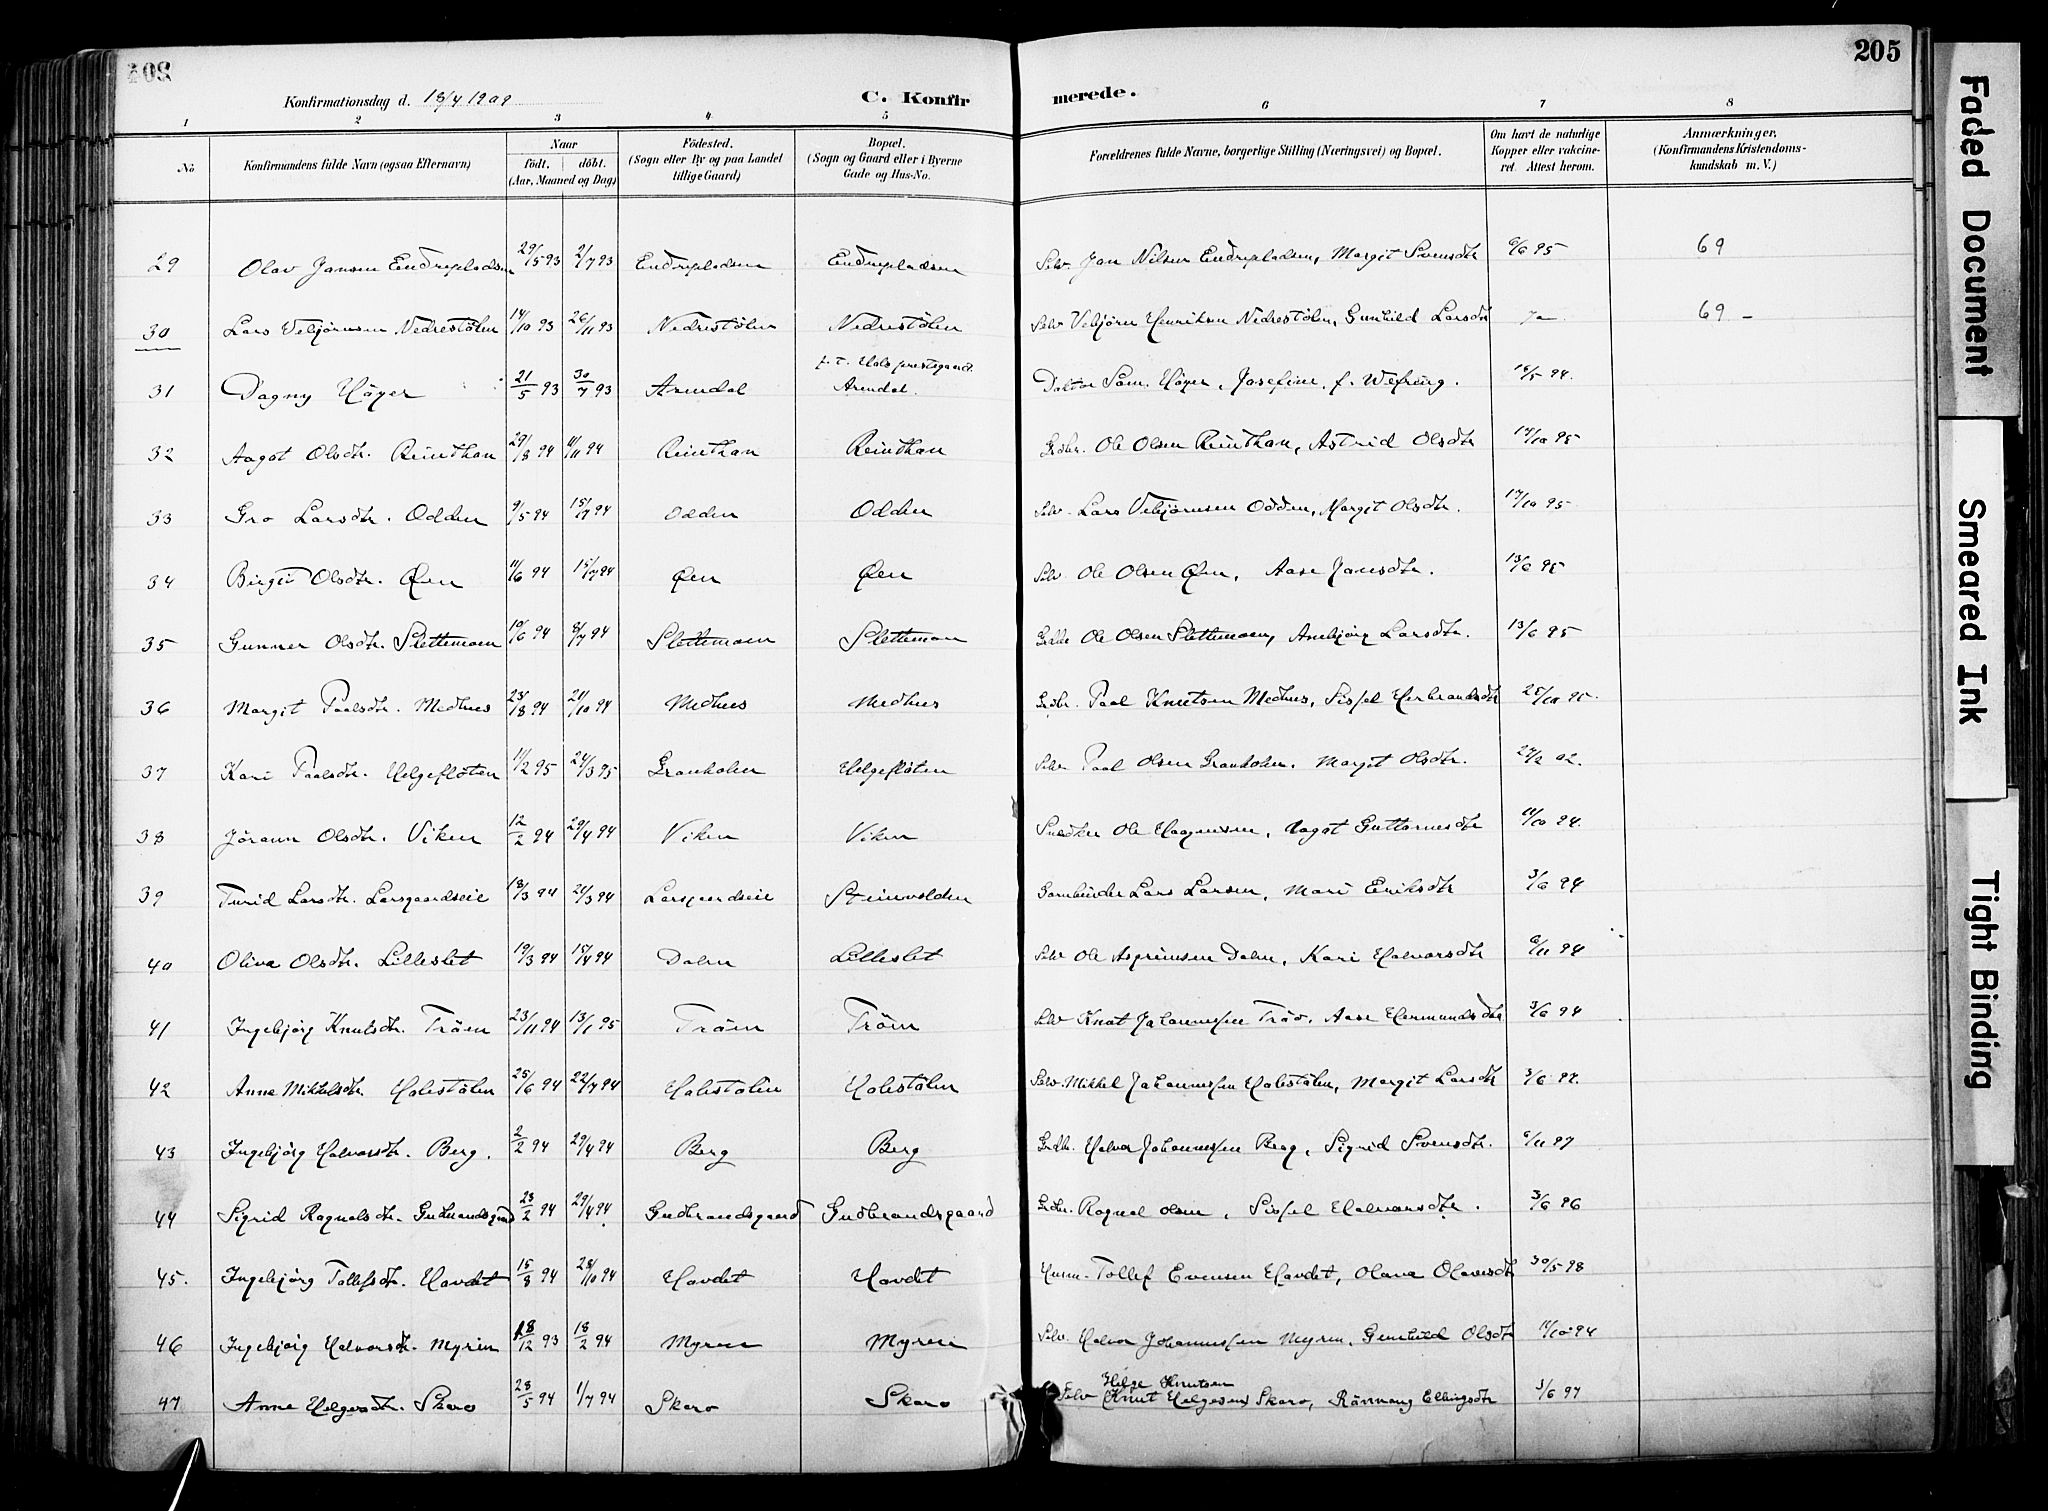 205
Konfirmationsdag d. 18/4 1909
C. Konfir merede.
1 2 3 4 5 6 7 8
No
Konfirmandens fulde Navn (ogsaa Efternavn)
Naar
födt. döbt.
(Aar, Maaned og Dag)
Födested.
(Sogn eller By og paa Landet
tillige Gaard)
Bopæl.
(Sogn og Gaard eller i Byerne
Gade og Hus-No.
Forældrenes fulde Navne, borgerlige Stilling (Næringsvei) og Bopæl.
Om havt de naturlige
Kopper eller vakcine-
ret. Attest herom.
Anmærkninger.
(Konfirmandens Kristendoms-
kundskab m. V.)
29 Olav Jansen Endrepladsen 29/5 93 2/7 93 Endrepladsen Endrepladsen Selv. Jan Nilsen Endrepladsen, Margit Svensdtr 6/6 95 69
30 Lars Vebjørnsen Nedrestölen 14/10 93 26/11 93 Nedrestölen Nedrestölen Selv Vebjörn Henriksen Nedrestölen, Gunhild Larsdtr Ja 69 -
f. t. Hols prestegaard
31 Dagny Höyer 21/5 93 30/7 93 Arendal Arendal. Doktor Sam. Höyer, Josefine, f. Wefring. 16/5 94.
32 Aagot Olsdtr. Reinthan 29/8 94 11/11 94 Reinthan Reinthan Grdbr. Ole Olsen Reinthan, Astrid Olsdtr 17/10 95
33 Gro Larsdtr. Odden 9/5 94 15/7 94 Odden Odden Selv. Lars Vebjørnsen Odden, Margit Olsdtr. 17/10 95
34 Birgit Olsdtr. Øen 11/6 94 15/7 94 Øen Øen Selv. Ole Olsen Øen, Aase Jansdtr. 13/6 95
35 Gunner Olsdtr. Slettemoen 10/6 94 8/7 94 Slettemoen Slettemoen Grdbr Ole Olsen Slettemoen, Anebjörg Larsdtr. 13/6 95
36 Margit Paalsdtr. Medhus 23/8 94 21/10 94 Medhus Medhus Grdbr. Paal Knutsen Medhus, Sissel Herbrandsdtr 25/10 95.
37 Kari Paalsdtr. Helgeflöten 11/2 95 24/3 95 Granholen Helgeflöten Selv Paal Olsen Granholen. Margit Olsdtr. 27/2 02.
38 Jörann Olsdtr. Viken 12/2 94 29/4 94 Viken Viken Snedker Ole Hagensen, Aagot Guttormsdtr 11/10 94.
39 Turid Larsdtr. Larsgaardseie 18/3 94 21/3 94 Larsgaardseie Steinvolden Garnbinder Lars Larsen, Mari Eriksdtr 3/6 94
40 Oliva Olsdtr. Lilleslet 19/3 94 15/4 94 Dalen Lilleslet Selv Ole Asgrimsen Dalen, Kari Halvorsdtr 6/11 94
41 Ingebjörg Knutsdtr. Tröen 23/11 94 13/1 95 Tröen Tröen Selv Knut Johannessen Tröo. Aase Hermundsdtr 3/6 94
42 Anne Mikkelsdtr. Holestölen 25/6 94 22/7 94 Holestölen Holestölen Selv Mikkel Johannessen Holestölen, Margit Larsdtr 3/6 97.
43 Ingebjörg Halvorsdtr. Berg. 2/2 94 29/4 94 Berg Berg Grdbr. Halvor Johannessen Berg, Sigrid Svensdtr. 6/11 97
44 Sigrid Ragnalsdtr. Gudbrandsgaard 23/2 94 29/4 94 Gudbrandsgaard Gudbrandsgaard Grdbr. Ragnal Olsen, Sissel Halvorsdtr. 3/6 96
45. Ingebjörg Tollefsdtr. Havdet 15/8 94 28/10 94 Havdet Havdet Husm. Tollef Evensen Havdet, Olava Olavesdtr 30/5 98
46 Ingebjörg Halvorsdtr. Myren 18/12 93 18/2 94 Myren Myren Selv. Halvor Johannessen Myren, Gunhild Olsdtr 11/10 94
Helge Knutsen
47 Anne Helgesdtr. Skaro 28/5 94 1/7 94 Skaro Skaro Selv (Knut Helgesen) Skaro, Rännaug Ellingsdtr 3/6 97
Faded Document
Smeared Ink
Tight Binding